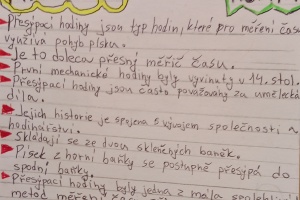 Přesýpací hodiny jsou typ hodin, které pro měření času
využívá pohyb písku.
Je to doleca přesný měřič času.
První mechanické hodiny byly vyvinuty v 14. stol.
Přesýpací hodiny jsou často považovány za umělecká
díla.
Jejich historie je spojena s vývojem společnosti a
hodinářství.
Skládají se ze dvou skleněných baněk.
Písek z horní baňky se postupně přesýpá do
spodní baňky.
Přesýpací hodiny byly jedna z mála spolehlivých
metod měření času